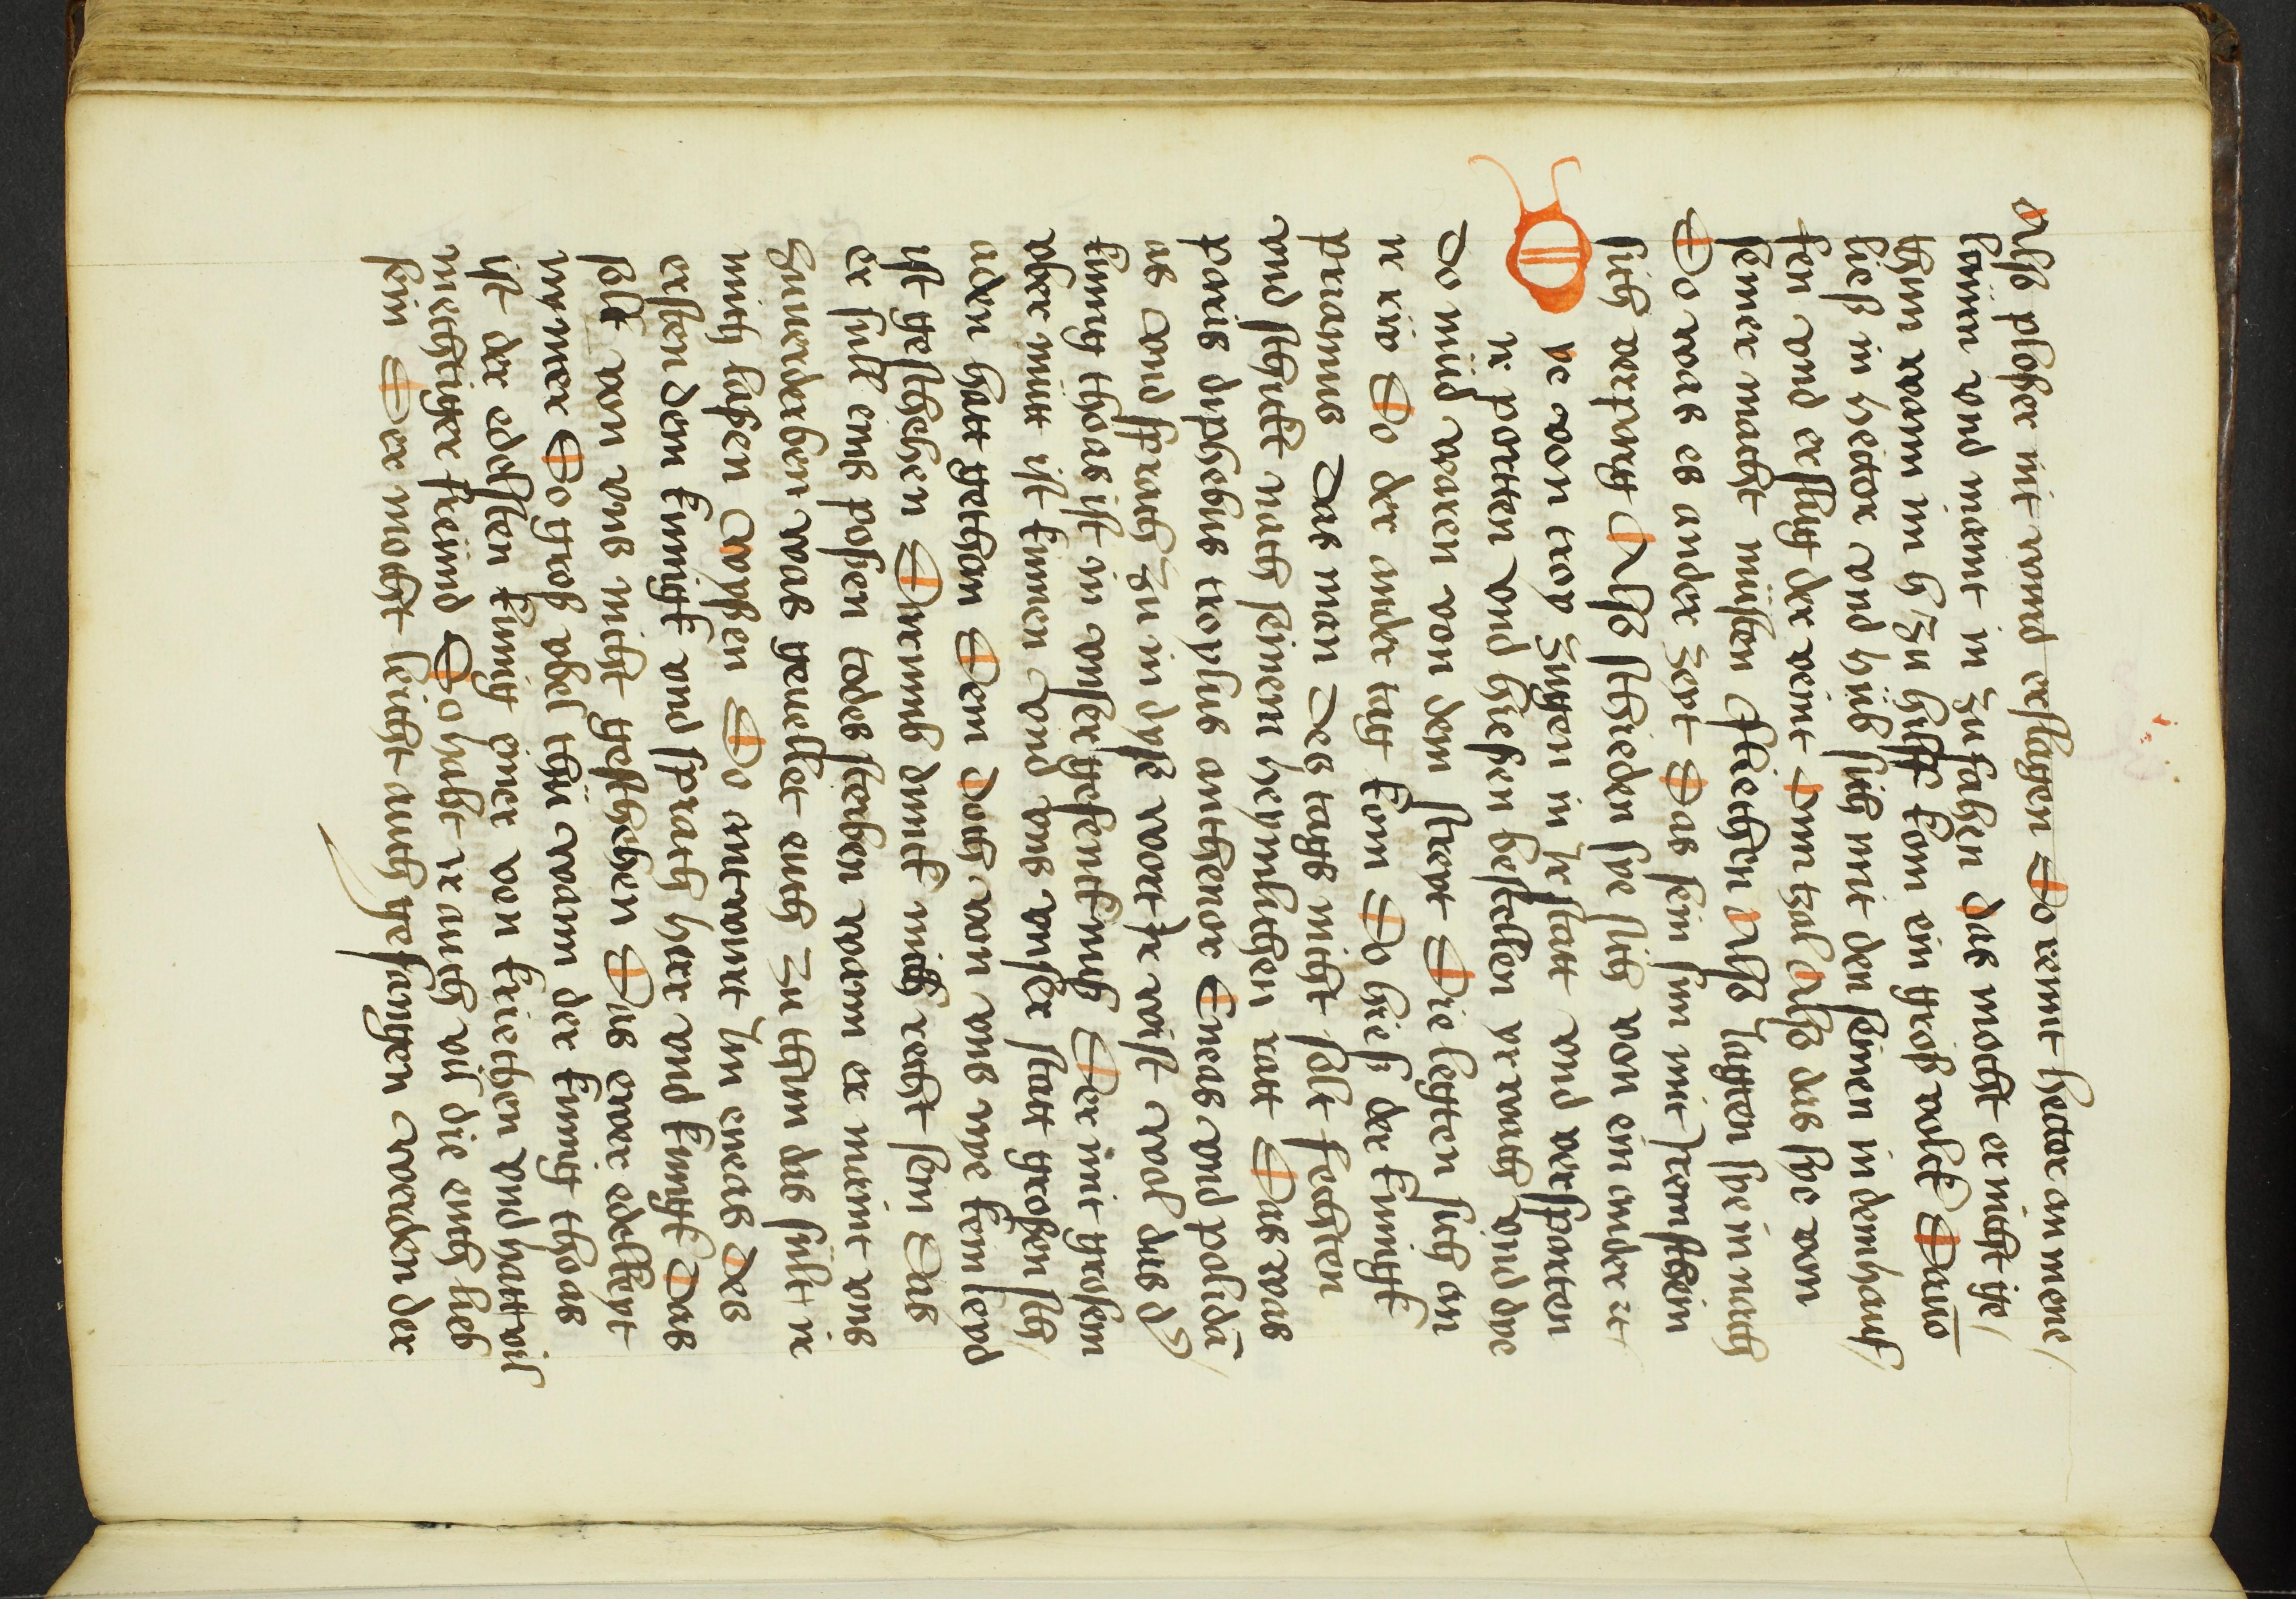 Also ploßer mit wund erslagen Do rennt hector an mene/
laum vnd maint in zufahen das mocht er nicht ge/
thun wann in h zu hilffe kom ein groß volck Dauo
ließ in hector vnd hub sich mit den seinen in den hauf/
fen vnd erslug der veint Dun tzal Also das sye von
seiner macht musten fliechen Also lagten sye in nach
Do was es ander zeyt Das sein sun mit irem schein
sich verparg Also schieden sye sich von einander ee
Die von troy zugen in ir statt vnd versparten
ir portten vnd hießen bestellen ir wach vnd dye
Do mud waren von dem streyt Die legten sich an
ir rue Do der ander tag kom Do hieß der kunigk
priamus Das man Des tags nicht solt fechten
vnd schickt nach seinem heymlichen ratt Das was
paris diphebus troylus anthenor Eneas vnd polida/
as vnd sprach zu in dyse wort Ir wist wol das d/
kunig thoas ist in vnser gefencknuß Der mit großem
aber mut ist kumen vnd vns vnser statt großen sch/
aden hatt gethon Dem doch von vns nye kein leyd
ist geschehen Dorumb dunckt mich recht sein Das
er sull eins poßen todes sterben wann er maint vns
zuuerderben was geuellet euch zu thun das sullt ir
mich laßen wyßen Do antwurt In eneas Des
ersten dem kunigk vnd sprach herr vnd kunigk Das
solt von vns nicht geschehen Dus ewer edelkeyt
ymmer So groß vbel thu wann der kunig thoas
ist der edelsten kunig einer von kriechen vnd hatt vil
mechtiger freund So habt ir auch vil die euch lieb
sein Der mocht leicht auch gefangen werden der